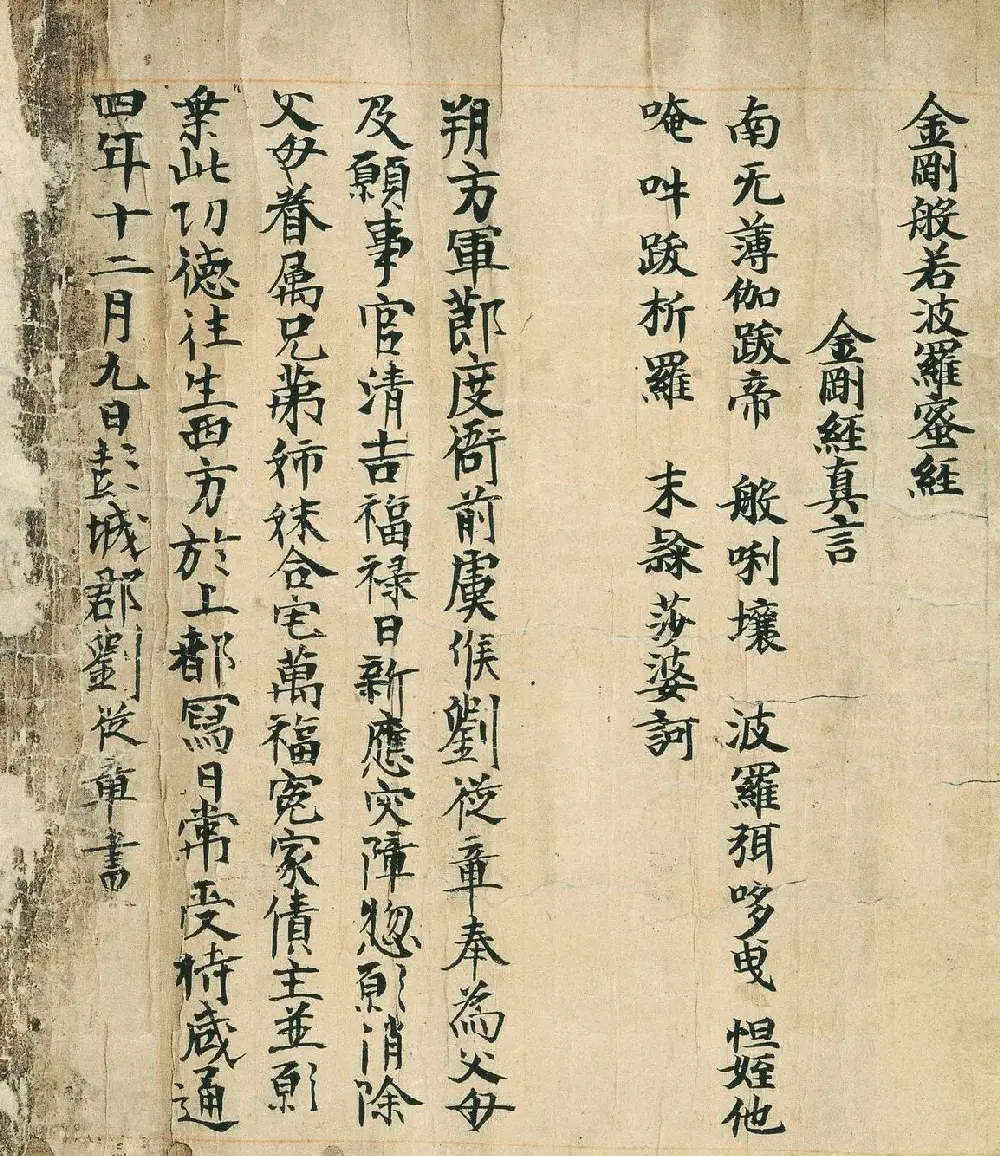 金剛般若波羅蜜經
金剛經真言
南无薄伽跋帝 般唎壤 波羅弭哆曳 怛姪他
唵 吽 跋折羅 末 莎婆訶
朔方軍節度衙前虞候劉從章奉為父母
及願事官清吉福禄日新應灾障惣願消除
父母眷属兄弟姉妹合宅萬福冤家債主並願
乗此功徳往生西方於上都冩日常受持咸通
四年十二月九日彭城郡劉從章書